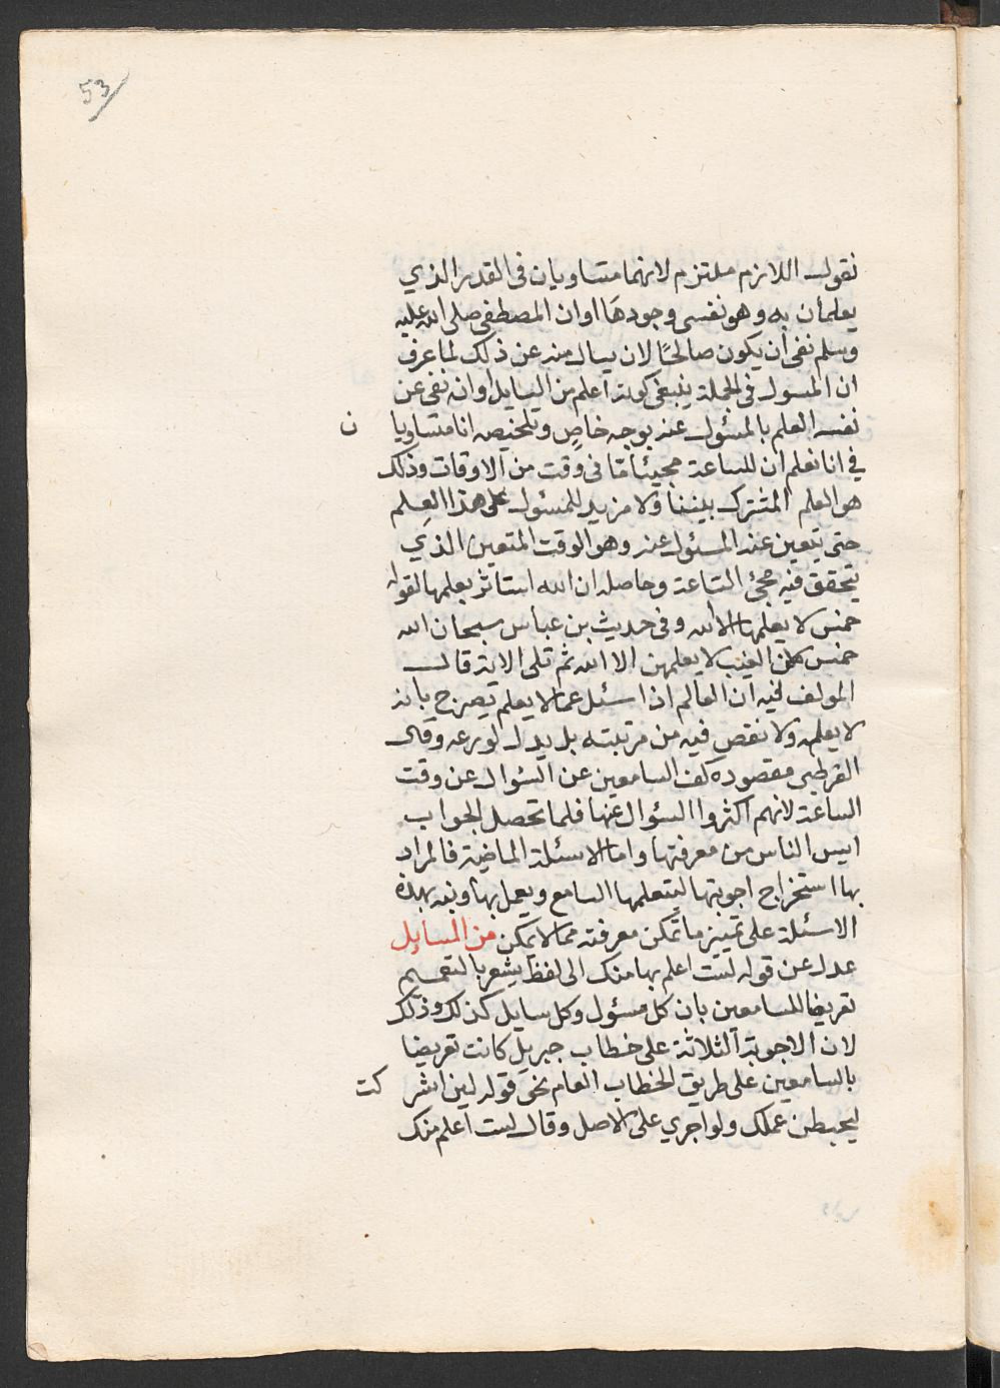 53
نقول اللازم ملتزم لانهما متساويان فى القدر الذي
يعلمان به وهو نفس وجودها اوان المصطفى صلى الله عليه
وسلم نفى أن يكون صالحًا لان يسال منه عن ذلك لما عرف
ان المسول فى الجملة ينبغى كونه اعلم من السايل او انه نفى عن
نفسه العلم بالمسئول عنه بوجه خاصٍ وتلخيصه انا متساويا ن
في انا نعلم ان للساعة مجيئا ما فى وقت من الاوقات وذلك
هو العلم المشترك بيننا ولا مزيد للمسئول على هذا العِلم
حتى يتعين عند المسئول عنه وهو الوقت المتعين الذي
يتحقق فيه مجئ الساعة وحاصله ان الله استاثر بعلمها لقوله
خمس لا يعلمها الا الله وفى حديث بن عباس سبحان الله
خمس من الغيب لا يعلمهن الا الله ثم تلى الاية قال
المولف فيه ان العالم اذا سئل عما لا يعلم يصرح بانه
لا يعلمه ولا نقص فيه من مرتبته بل يدل لورعه وقال
القرطبى مقصوده كف السامعين عن السوال عن وقت
الساعة لانهم اكثروا السؤال عنها فلما تحصل الجواب
ايس الناس من معرفتها واما الاسئلة الماضية فالمراد
بها استخراج اجوبتها ليتعلمها السامع ويعمل بها ونبه بهذه
الاسئلة على تمييز ما تمكن معرفته مما لا يمكن من المسايل
عدل عن قوله لست اعلم بها منك الى لفظ يشعر بالتعميم
تعريضا للسامعين بان كل مسئول وكل سايل كذلك وذلك
لان الاجوبة الثلاثة على خطاب جبريل كانت تعريضا
بالسامعين على طريق الخطاب العام نحى قوله لين اشر كت
ليحبطن عملك ولو اجري على الاصل وقال لست اعلم منك